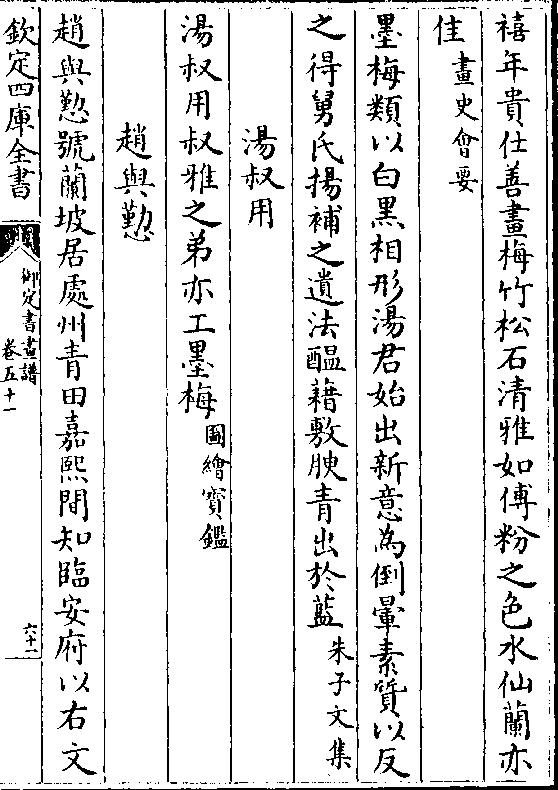 禧年貴仕善畫梅竹松石清雅如傅粉之色水仙蘭亦
佳畫史會要
墨梅類以白黑相形湯君始出新意為倒暈素質以反
之得舅氏揚補之遺法醖藉敷腴青出於藍朱子文集
湯叔用
湯叔用叔雅之弟亦工墨梅圖繪寳鑑
趙與懃
趙與懃號蘭坡居處州青田嘉熙間知臨安府以右文
欽定四庫全書
御定書畫譜
卷五十一
六十一